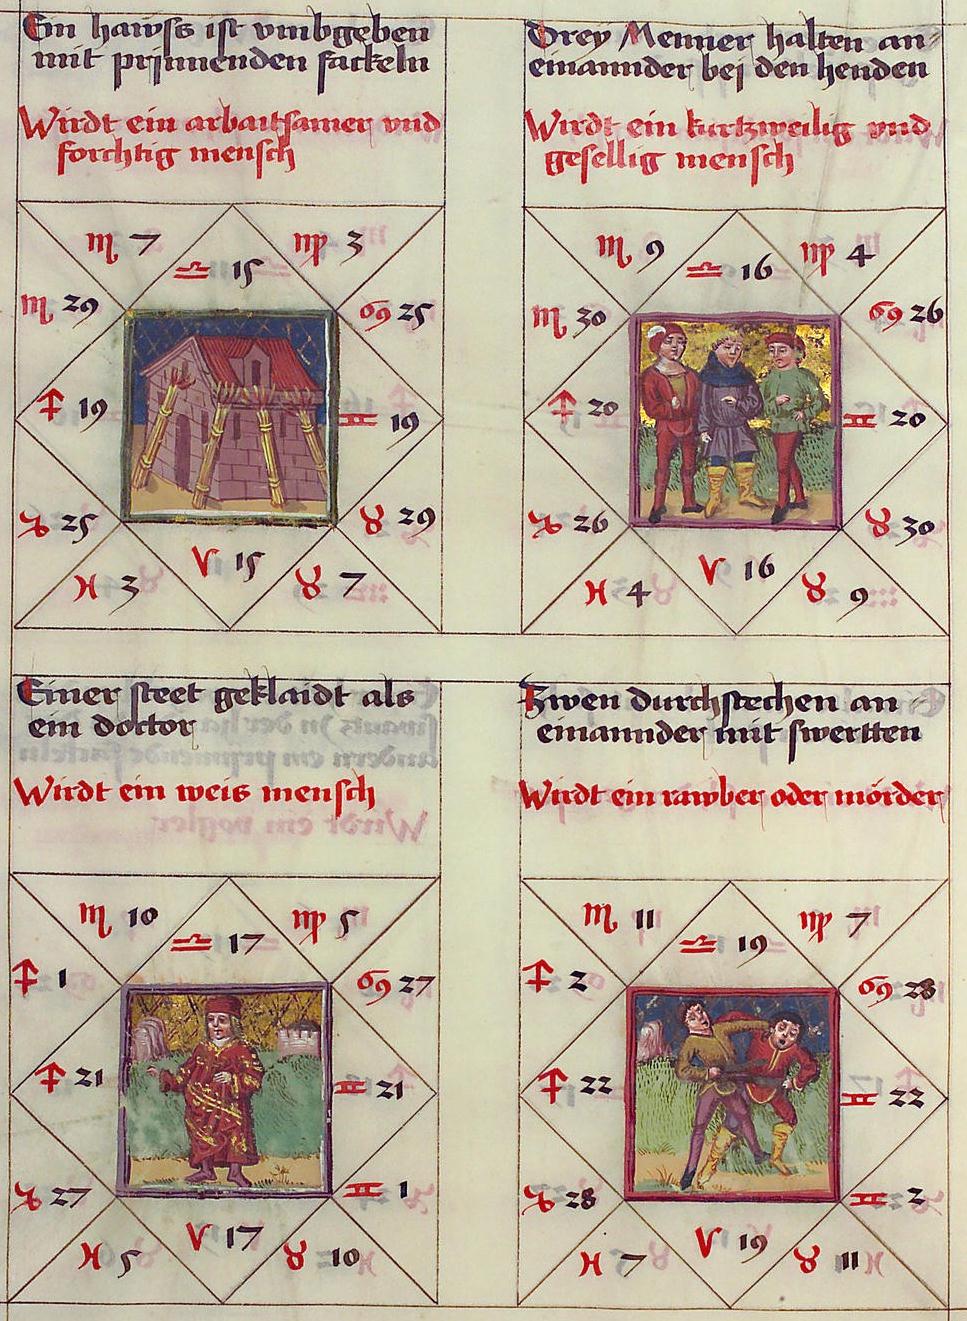 Ein hawss ist vmbgeben
mit prinnenden fackeln
Wirdt ein arbaitsamer vnd
forchtig mensch
♏ 7
♍ 3
♎ 15
♏ 29
♋ 25
♐ 19
♊ 19
♑ 25
♉ 29
♈ 15
♓ 3
♉ 7
Drey Menner halten an
einannder bej den henden
Wirdt ein kurtzweilig vnd
gesellig mensch
♏ 9
♍ 4
♎ 16
♏ 30
♋ 26
♐ 20
♊ 20
♑ 26
♉ 30
♈ 16
♓ 4
♉ 9
Einer steet geklaidt als
ein doctor
Wirdt ein weis mensch
♏ 10
♍ 5
♎ 17
♐ 1
♋ 27
♐ 21
♊ 21
♑ 27
♊ 1
♈ 17
♓ 5
♉ 10
Zwen durchstechen an
einannder mit swertten
Wirdt ein rawber oder mörder
♏ 11
♍ 7
♎ 19
♐ 2
♋ 28
♐ 22
♊ 22
♑ 28
♊ 2
♈ 19
♓ 7
♉ 11